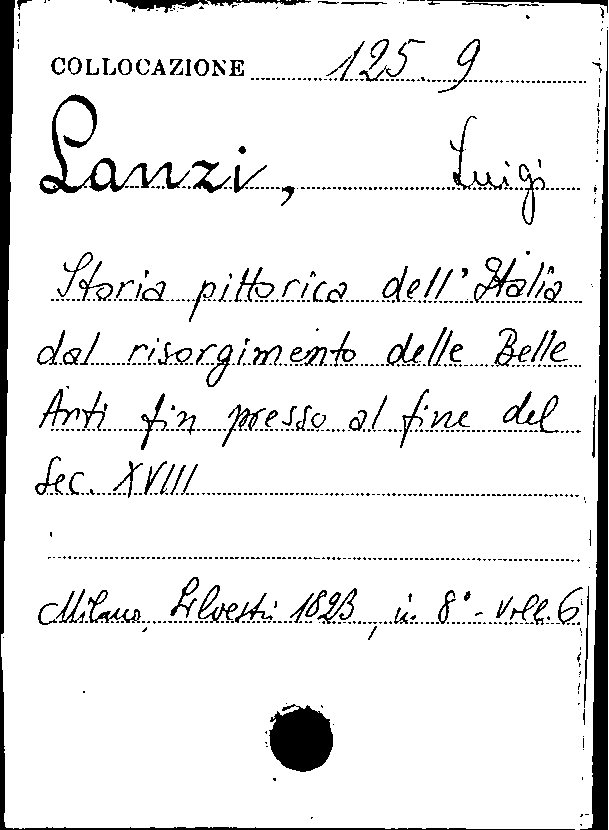 COLLOCAZIONE 125. 9
Lanzi, Luigi
Storia pittorica dell'Italia
dal risorgimento delle Belle
Arti fin presso al fine del
Sec. XVIII
Milano, Silvestri 1823, in 8° - Voll. 6